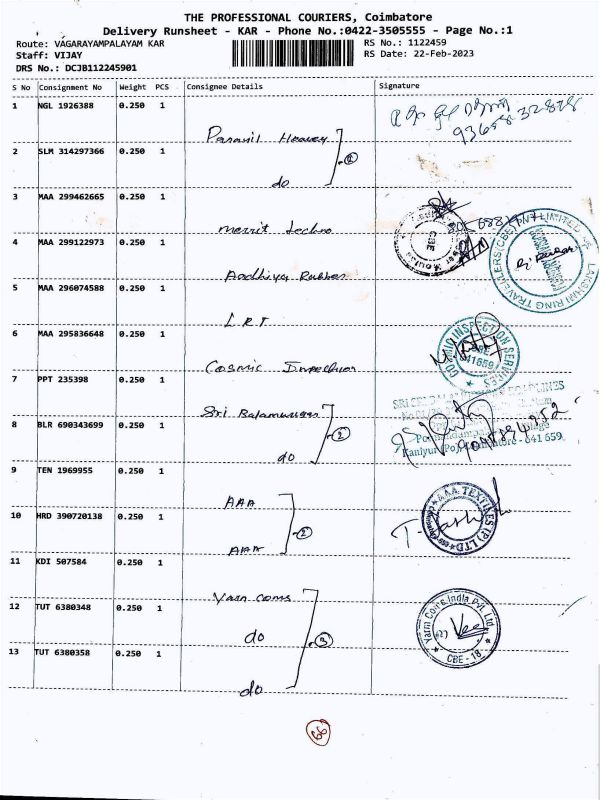 THE PROFESSIONAL COURIERS, Coimbatore
Delivery Runsheet - KAR - Phone No.:0422-3505555 - Page No.:1
Route: VAGARAYAMPALAYAM KAR
RS No.: 1122459
Staff: VIJAY
RS Date: 22-Feb-2023
DRS No.: DCJB112245901
S No Consignment No Weight PCS Consignee Details Signature
1 NGL 1926388 0.250 1
93658 32828
2 SLM 314297366 0.250 1
do
3 MAA 299462665 0.250 1
Merrit techno
4 MAA 299122973 0.250 1
Aadhiya Rubber
CBE
LAKSHAN RING TRAVELLERS (CBE) PVT LIMITED
5 MAA 296074588 0.250 1
L.R.T
6 MAA 295836648 0.250 1
Cosmic Inspection
COSMIC INSPECTION SERVICES
CBE
641 659
7 PPT 235398 0.250 1
Sri Balamurugan
8 BLR 690343699 0.250 1
do
2
Kaniyur (Po), Coimbatore - 641 659.
9 TEN 1969955 0.250 1
AAA
10 HRD 390720138 0.250 1
AAA
2
AAA TEXTILES (P) LTD
11 KDI 507584 0.250 1
Yarn Coms
12 TUT 6380348 0.250 1
do
3
Yarn Coms India Pvt. Ltd.
CBE - 18
13 TUT 6380358 0.250 1
do